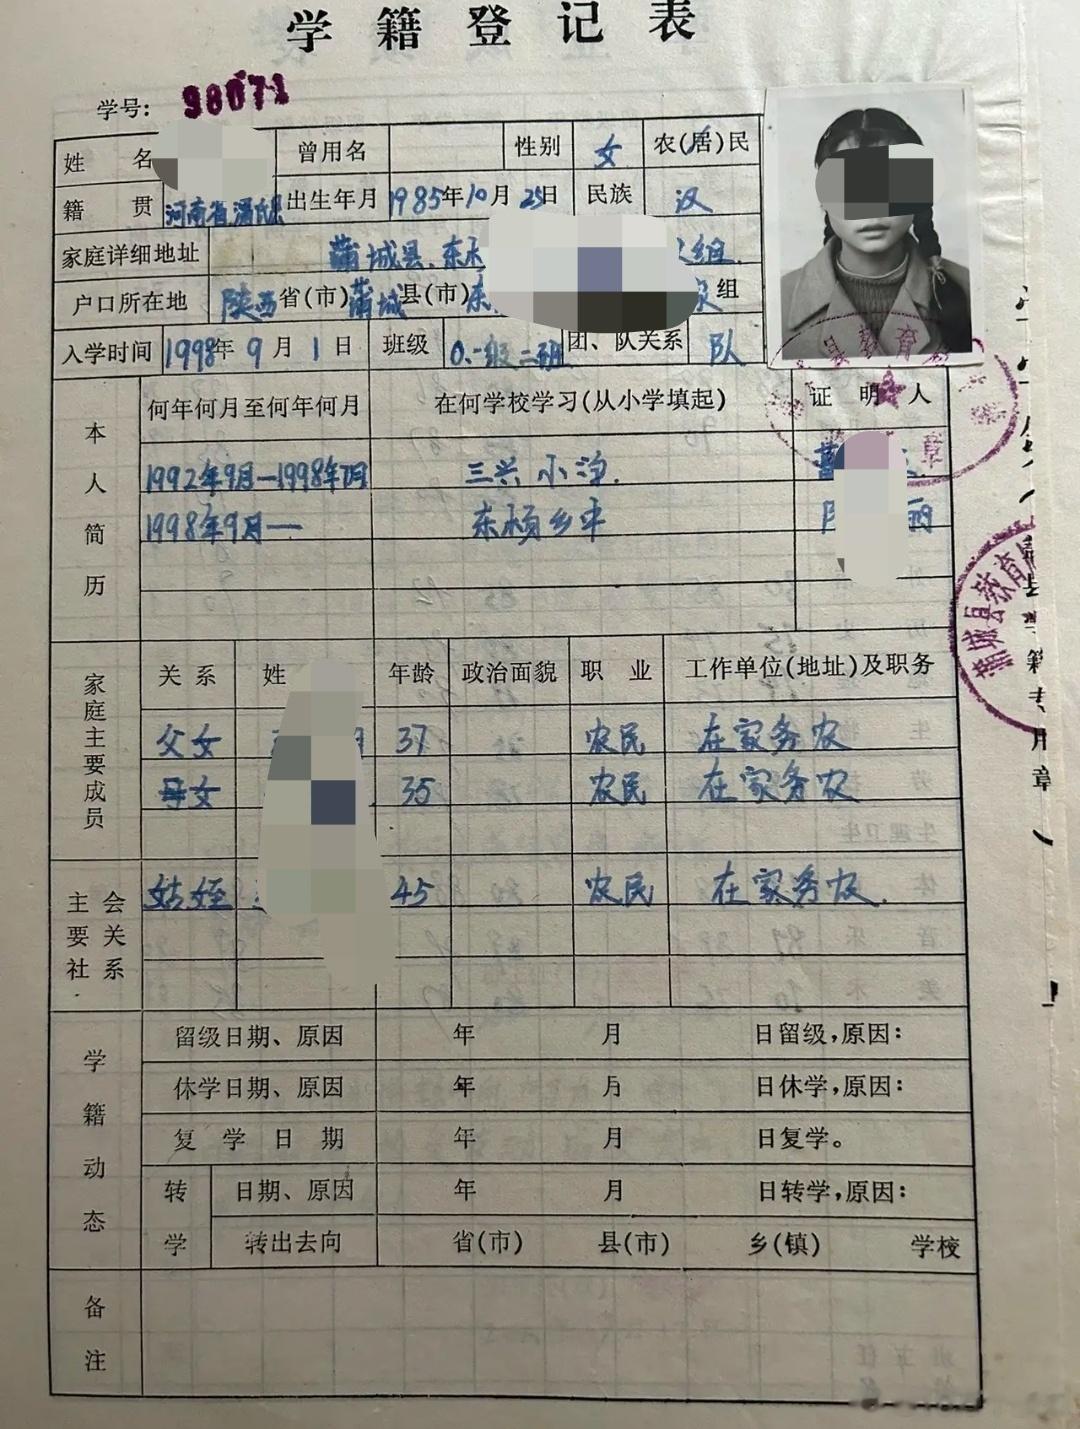 学籍登记表
学号: 98071
姓名 曾用名 性别 女 农(居)民
籍贯 河南省 出生年月 1985年10月25日 民族 汉
家庭详细地址 蒲城县.东 组.
户口所在地 陕西省(市)蒲城县(市)东 组
入学时间 1998年9月1日 班级 0.一级二班 团、队关系 队
本人简历 何年何月至何年何月 在何学校学习(从小学填起) 证明人
1992年9月—1998年7月 三兴小学.
1998年9月— 东 乡中 丽
家庭主要成员 关系 姓 年龄 政治面貌 职业 工作单位(地址)及职务
父女 37 农民 在家务农
母女 35 农民 在家务农
主要社会关系 姑姪 45 农民 在家务农.
学籍动态 留级日期、原因 年 月 日留级,原因:
休学日期、原因 年 月 日休学,原因:
复学日期 年 月 日复学。
转学 日期、原因 年 月 日转学,原因:
转出去向 省(市) 县(市) 乡(镇) 学校
备注
县教育 章
蒲城县教育局
县学籍专用章)